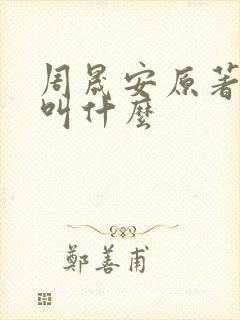 周晟安原著
叫什麼
鄭善甫